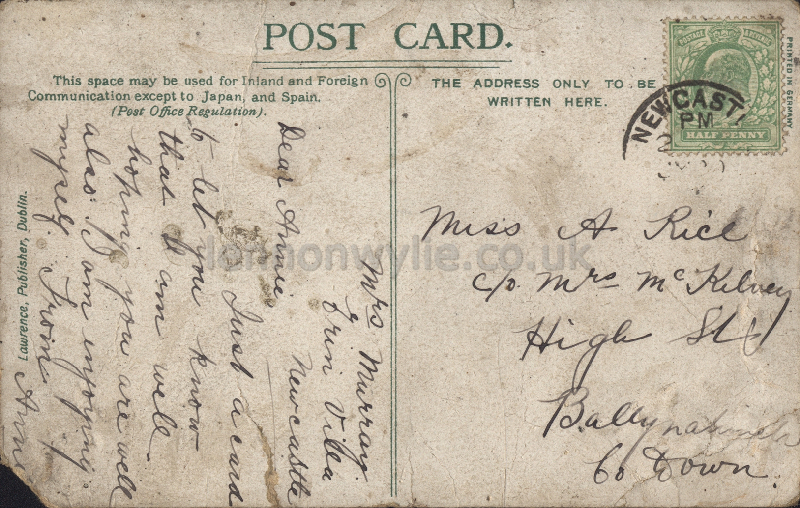 POST CARD.
This space may be used for Inland and Foreign
Communication except to Japan, and Spain.
(Post Office Regulation).
THE ADDRESS ONLY TO BE
WRITTEN HERE.
POSTAGE & REVENUE
HALF PENNY
PRINTED IN GERMANY
NEWCAST
PM
Lawrence, Publisher, Dublin.
Mrs Murray
Erin Villa
Newcastle
Dear Annie
Just a card
to let you know
that I am well
hoping you are well
also. I am enjoying
myself. From
Miss A Rice
c/o Mrs McKelvey
High St
Co Down.
lennonwylie.co.uk